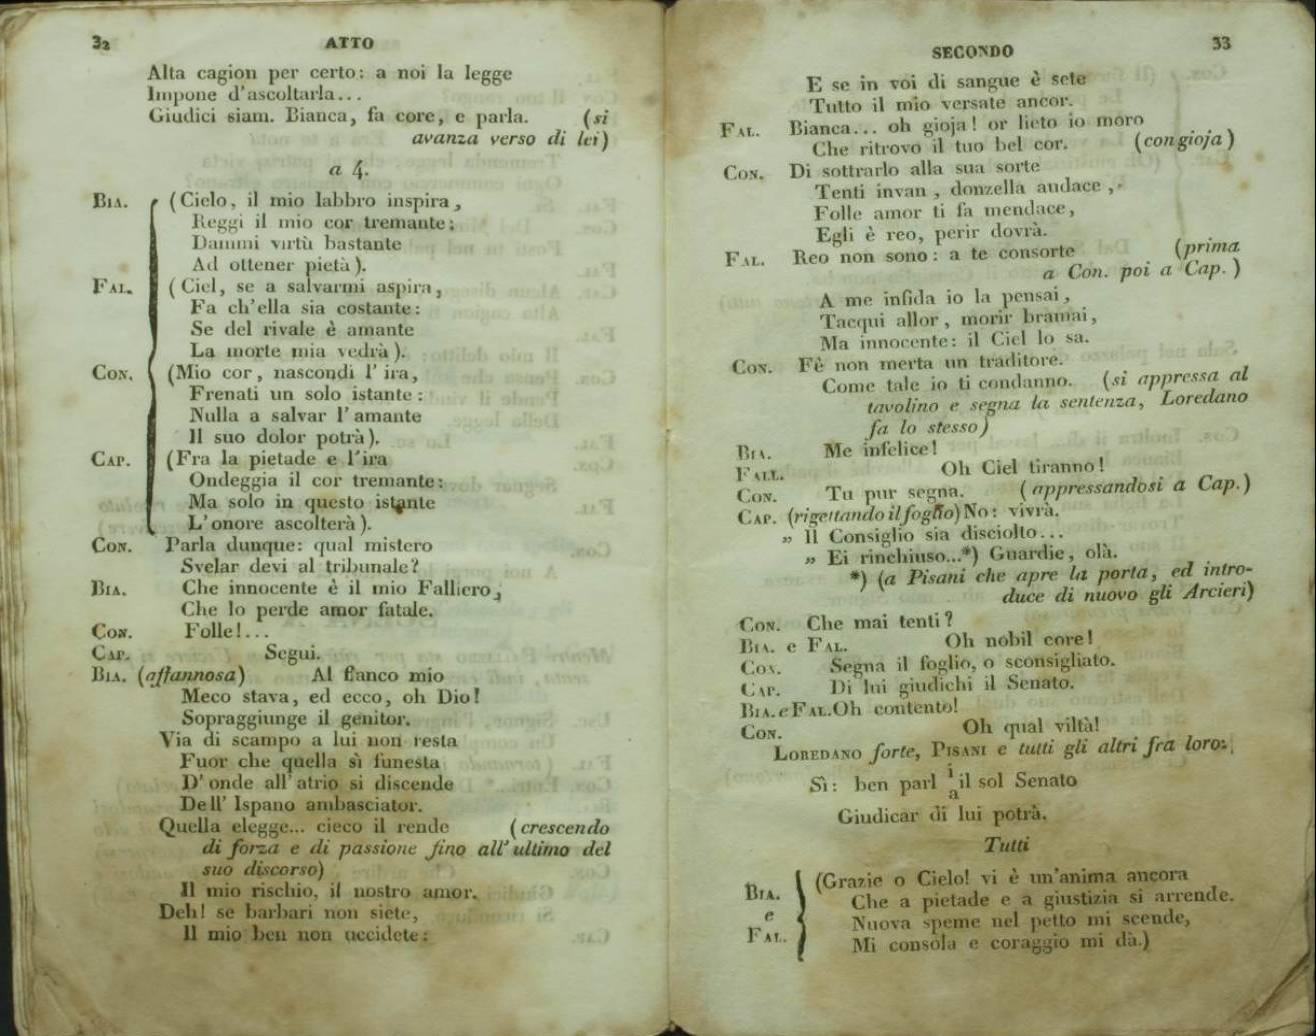 32
ATTO
Alta cagion per certo: a noi la legge
Impone d'ascoltarla...
Giudici siam. Bianca, fa core, e parla. (si
avanza verso di lei)
a 4.
BIA. (Cielo, il mio labbro inspira,
Reggi il mio cor tremante;
Dammi virtù bastante
Ad ottener pietà).
FAL. (Ciel, se a salvarmi aspira,
Fa ch'ella sia costante:
Se del rivale è amante
La morte mia vedrà).
CON. (Mio cor, nascondi l'ira,
Frenati un solo istante:
Nulla a salvar l'amante
Il suo dolor potrà).
CAP. (Fra la pietade e l'ira
Ondeggia il cor tremante:
Ma solo in questo istante
L'onore ascolterà).
CON. Parla dunque: qual mistero
Svelar devi al tribunale?
BIA. Che innocente è il mio Falliero,
Che lo perde amor fatale.
CON. Folle!...
CAP. Segui.
BIA. (affannosa) Al fianco mio
Meco stava, ed ecco, oh Dio!
Sopraggiunge il genitor.
Via di scampo a lui non resta
Fuor che quella sì funesta
D'onde all'atrio si discende
Dell'Ispano ambasciator.
Quella elegge... cieco il rende (crescendo
di forza e di passione fino all'ultimo del
suo discorso)
Il mio rischio, il nostro amor.
Deh! se barbari non siete,
Il mio ben non uccidete:
SECONDO
33
E se in voi di sangue è sete
Tutto il mio versate ancor.
FAL. Bianca... oh gioja! or lieto io moro
Che ritrovo il tuo bel cor. (con gioja)
CON. Di sottrarlo alla sua sorte
Tenti invan, donzella audace,
Folle amor ti fa mendace,
Egli è reo, perir dovrà.
FAL. Reo non sono: a te consorte (prima
a Con. poi a Cap.)
A me infida io la pensai,
Tacqui allor, morir bramai,
Ma innocente: il Ciel lo sa.
CON. Fè non merta un traditore.
Come tale io ti condanno. (si appressa al
tavolino e segna la sentenza, Loredano
fa lo stesso)
BIA. Me infelice!
FALL. Oh Ciel tiranno!
CON. Tu pur segna. (appressandosi a Cap.)
CAP. (rigettando il foglio) No: vivrà.
„ Il Consiglio sia disciolto...
„ Ei rinchiuso...*) Guardie, olà.
*) (a Pisani che apre la porta, ed intro-
duce di nuovo gli Arcieri)
CON. Che mai tenti?
BIA. e FAL. Oh nobil core!
CON. Segna il foglio, o sconsigliato.
CAP. Di lui giudichi il Senato.
BIA. e FAL. Oh contento!
CON. Oh qual viltà!
LOREDANO forte, PISANI e tutti gli altri fra loro:
Sì: ben parl i/a il sol Senato
Giudicar di lui potrà.
Tutti
BIA. e FAL. (Grazie o Cielo! vi è un'anima ancora
Che a pietade e a giustizia si arrende.
Nuova speme nel petto mi scende,
Mi consola e coraggio mi dà.)